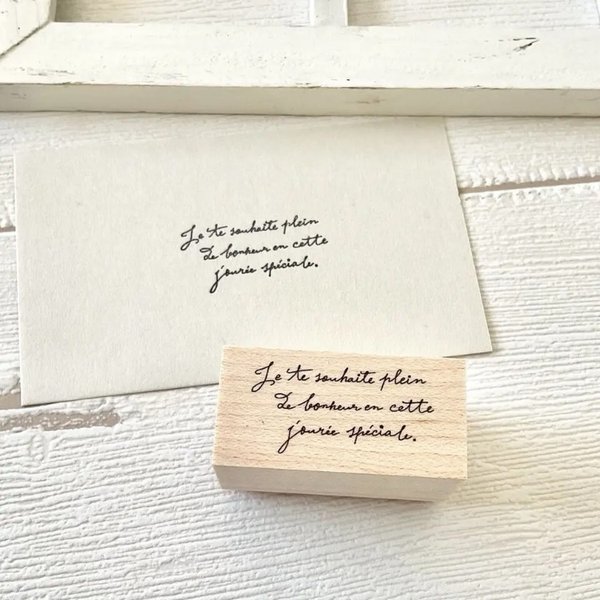 Je te souhaite plein
de bonheur en cette
jourée spéciale.
Je te souhaite plein
de bonheur en cette
jourée spéciale.